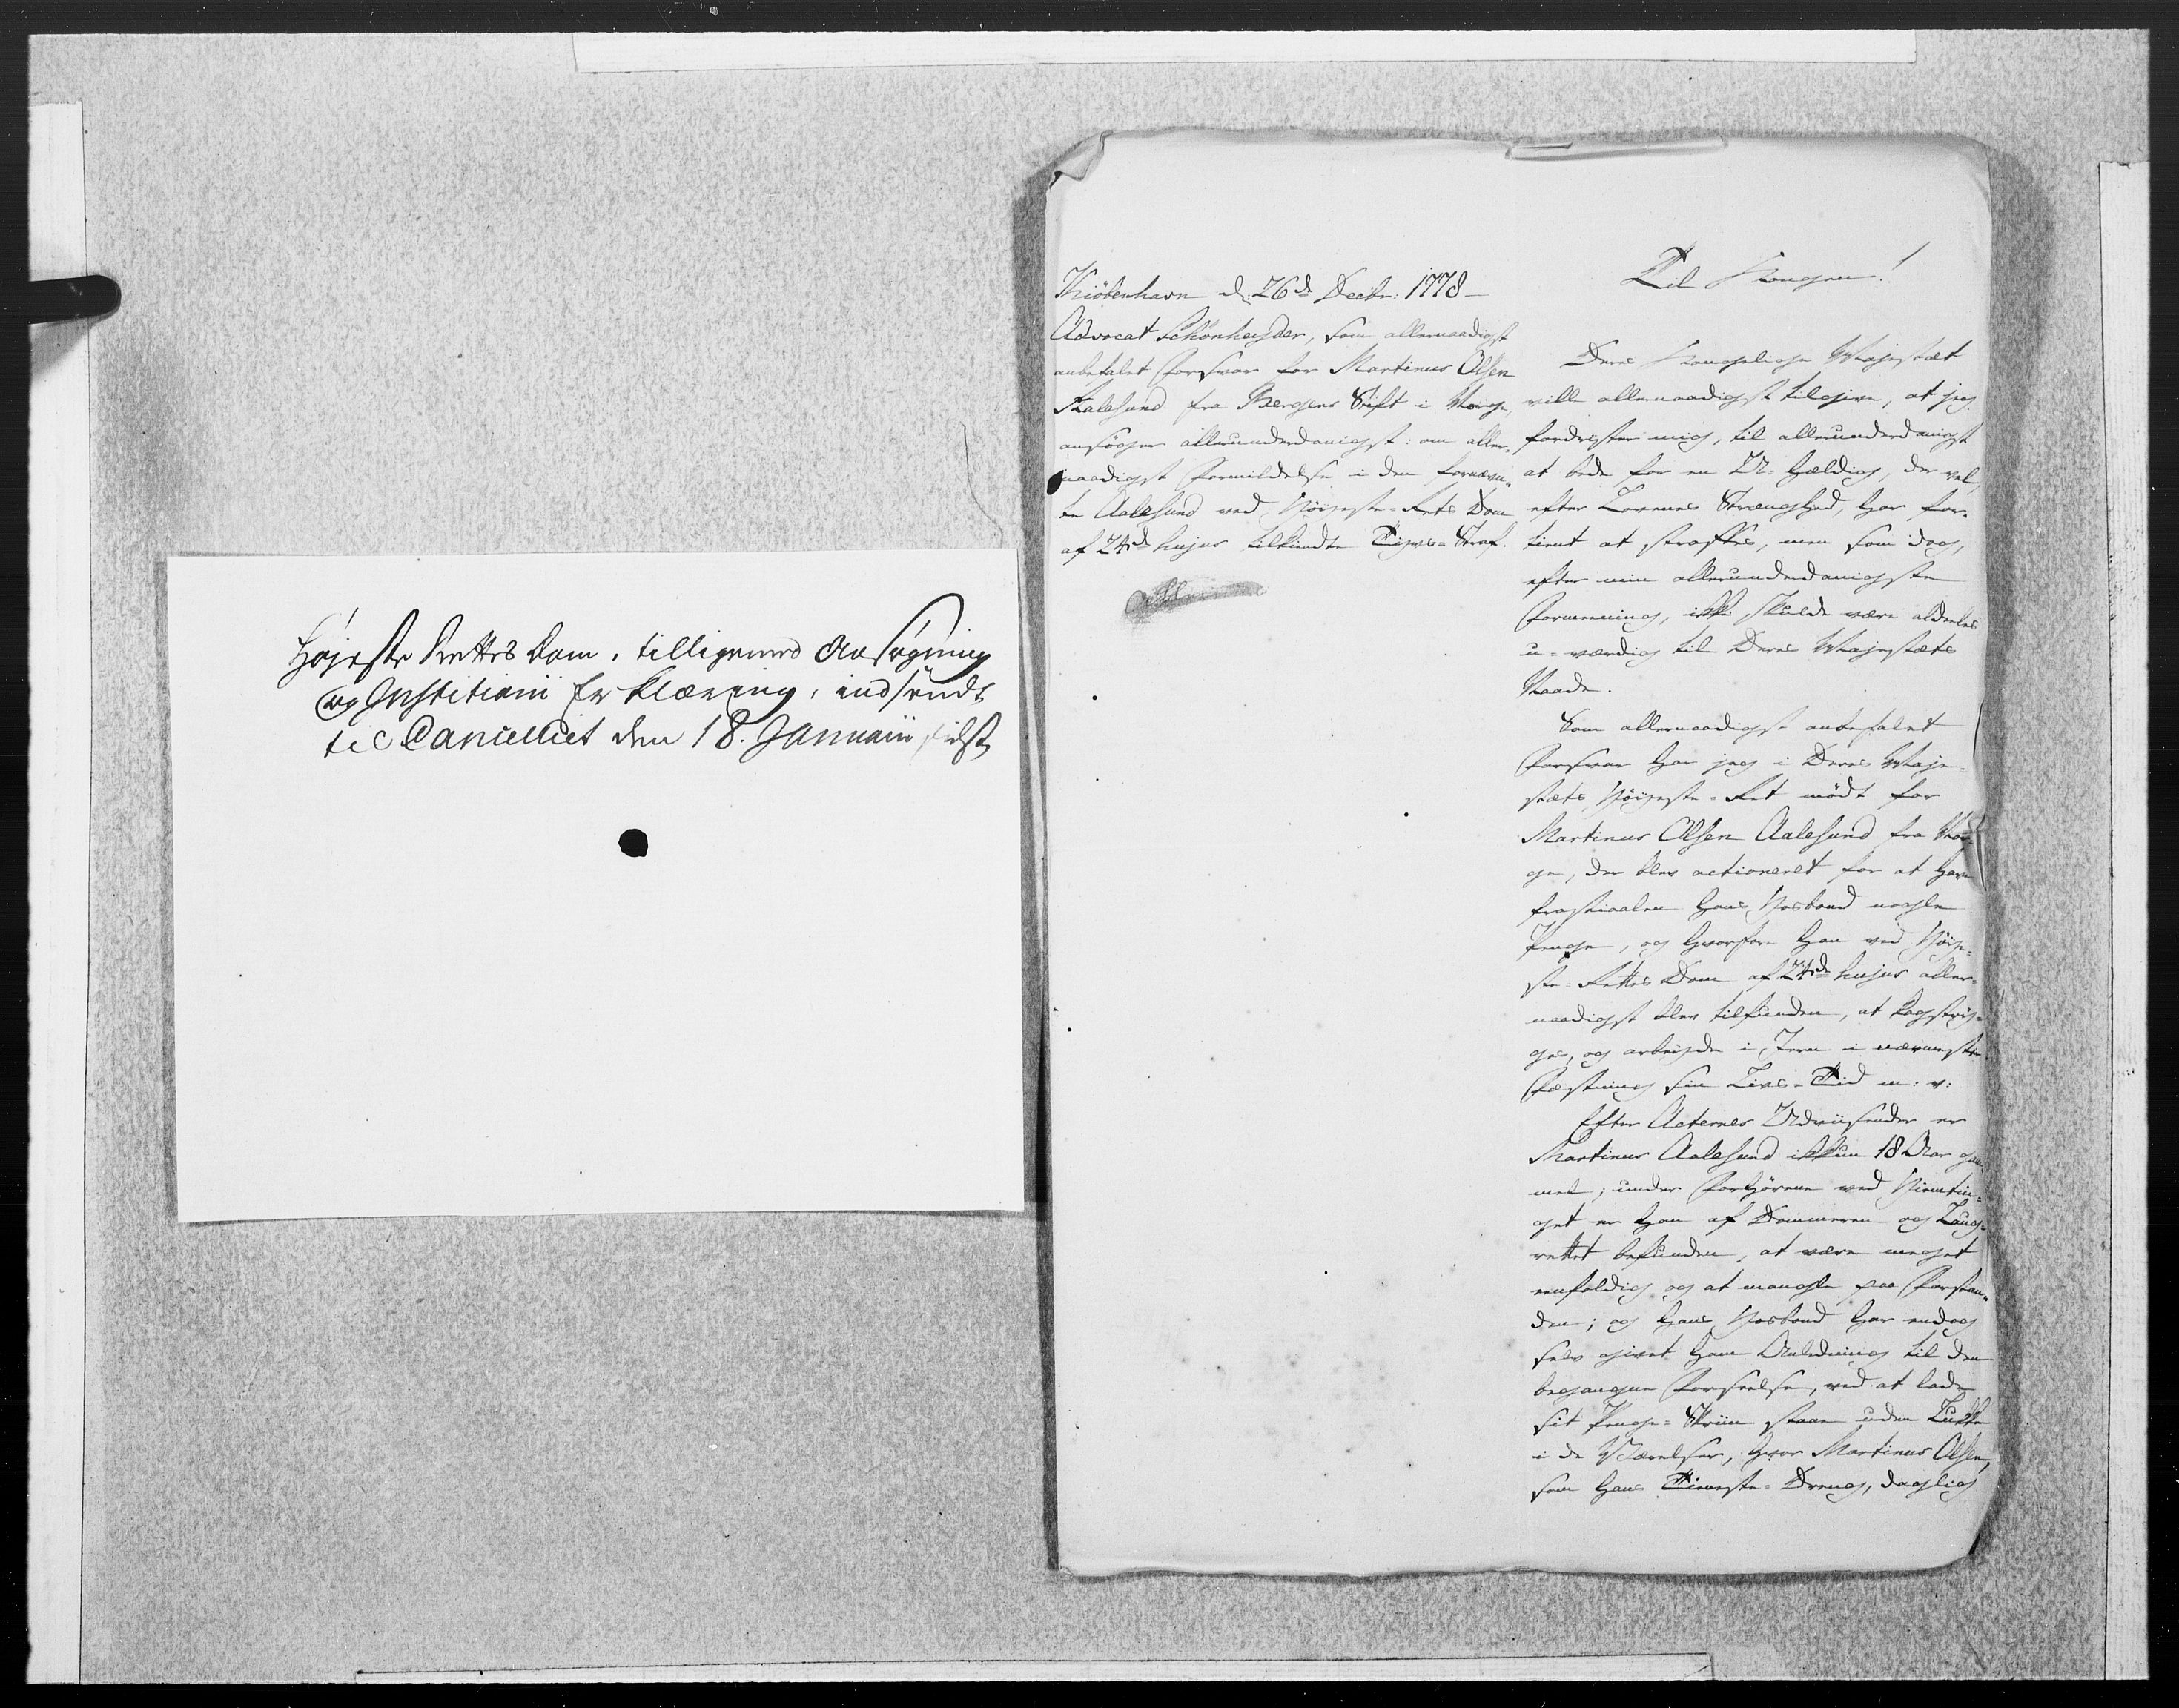 Højeste Rettes Dom, tilligemed Ansøgning
og Justitiarii Erklæring, indsendt
til Cancelliet den 18. Januarii sidst,
Kiöbenhavn d: 26de Decbr: 1778 –
Advocat Schönheyder, som allernaadigst
anbefalet Forsvar for Martinus Olsen
Aalesund fra Bergens Stift i Norge,
ansøger allerunderdanigst: om aller-
naadigst Formildelse i den fornævn-
te Aalesund ved Höieste-Rets Dom
af 24de hujus tilkiendte Tyvs-Straf.
Til Kongen!
Deres Kongelige Majestæt
ville allernaadigst tilgive, at jeg
fordrister mig, til allerunderdanigst
at bede for en U-heldig, der vel,
efter Lovenes Strænghed, har for-
tient at straffes, men som dog,
efter min allerunderdanigste
Formening, ikke skulde være aldeles
u-værdig til Deres Majestæts
Naade.
Som allernaadigst anbefalet
Forsvar har jeg i Deres Maje-
stæts Höieste-Ret mödt for
Martinus Olsen Aalesund fra Nor-
ge, der blev actioneret for at have
frastiaalen hans Hosbond nogle
Penge, og hvorfore han ved Höie-
ste-Rettes Dom af 24de hujus aller-
naadigst blev tilfunden, at kagstry-
ges, og arbeyde i Jern i nærmeste
Fæstning sin Livs-Tid m: v:
Efter Acternes Udviisende er
Martinus Aalesund ikkun 18 Aar gam-
mel; under Forhörene ved Hiemtin-
get er han af Dommeren og Laug-
rettet befunden, at være meget
eenfoldig og at mangle paa Forstan-
den; og hans Hosbond har endog
selv givet ham Anledning til den
begangne Forseelse, ved at lade
sit Penge-Skriin staae uden Lukke
i de Værelser, hvor Martinus Olsen,
som hans Tieneste-Dreng, daglig